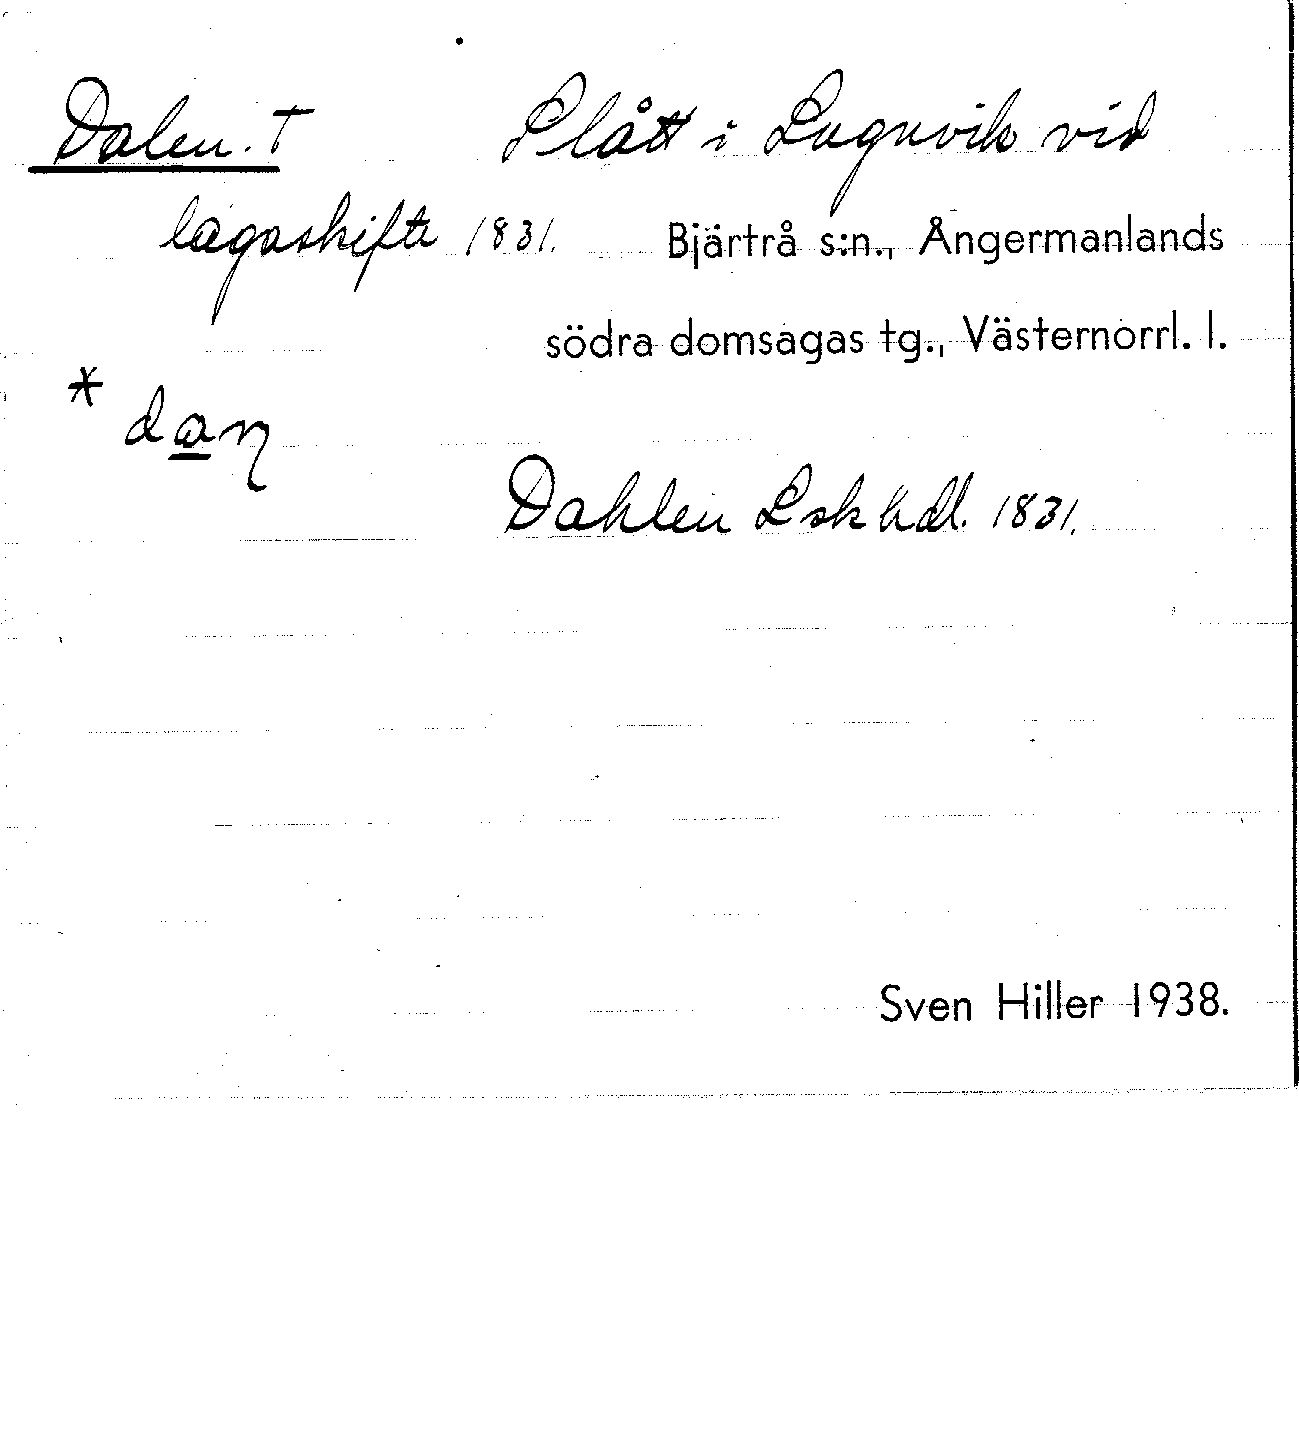 Dalen. † Slått i Lugnvik vid
lagaskifte 1831. Bjärtrå s:n., Ångermanlands
södra domsagas tg., Västernorrl. l.
* daŋ
Dahlen Lskhdl. 1831.
Sven Hiller 1938.